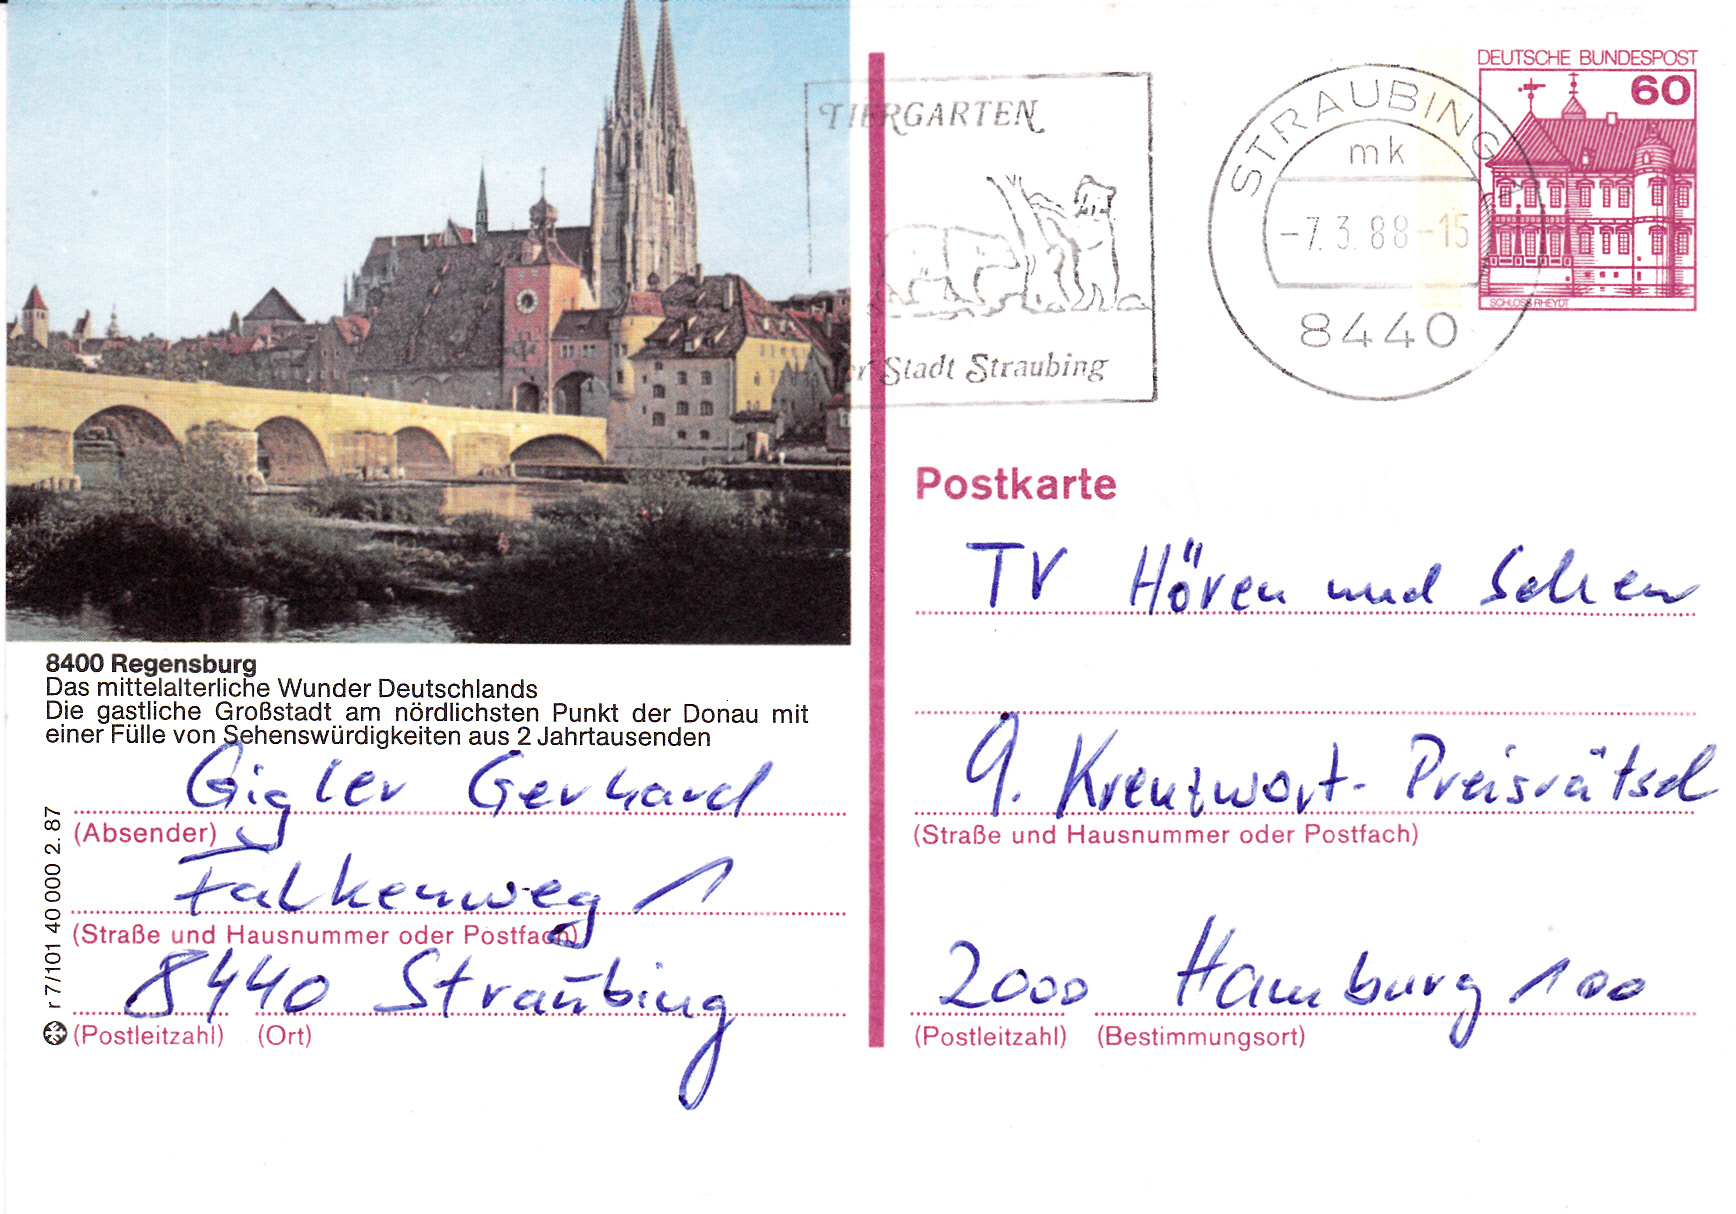 DEUTSCHE BUNDESPOST
60
SCHLOSS RHEYDT
STRAUBING
mk
-7.3.88-15
8440
TIERGARTEN
er Stadt Straubing
Postkarte
TV Hören und Sehen
9. Kreuzwort-Preisrätsel
(Straße und Hausnummer oder Postfach)
2000 Hamburg 100
(Postleitzahl) (Bestimmungsort)
8400 Regensburg
Das mittelalterliche Wunder Deutschlands
Die gastliche Großstadt am nördlichsten Punkt der Donau mit
einer Fülle von Sehenswürdigkeiten aus 2 Jahrtausenden
Gigler Gerhard
(Absender)
Falkenweg 1
(Straße und Hausnummer oder Postfach)
8440 Straubing
(Postleitzahl) (Ort)
r 7/101 40 000 2. 87